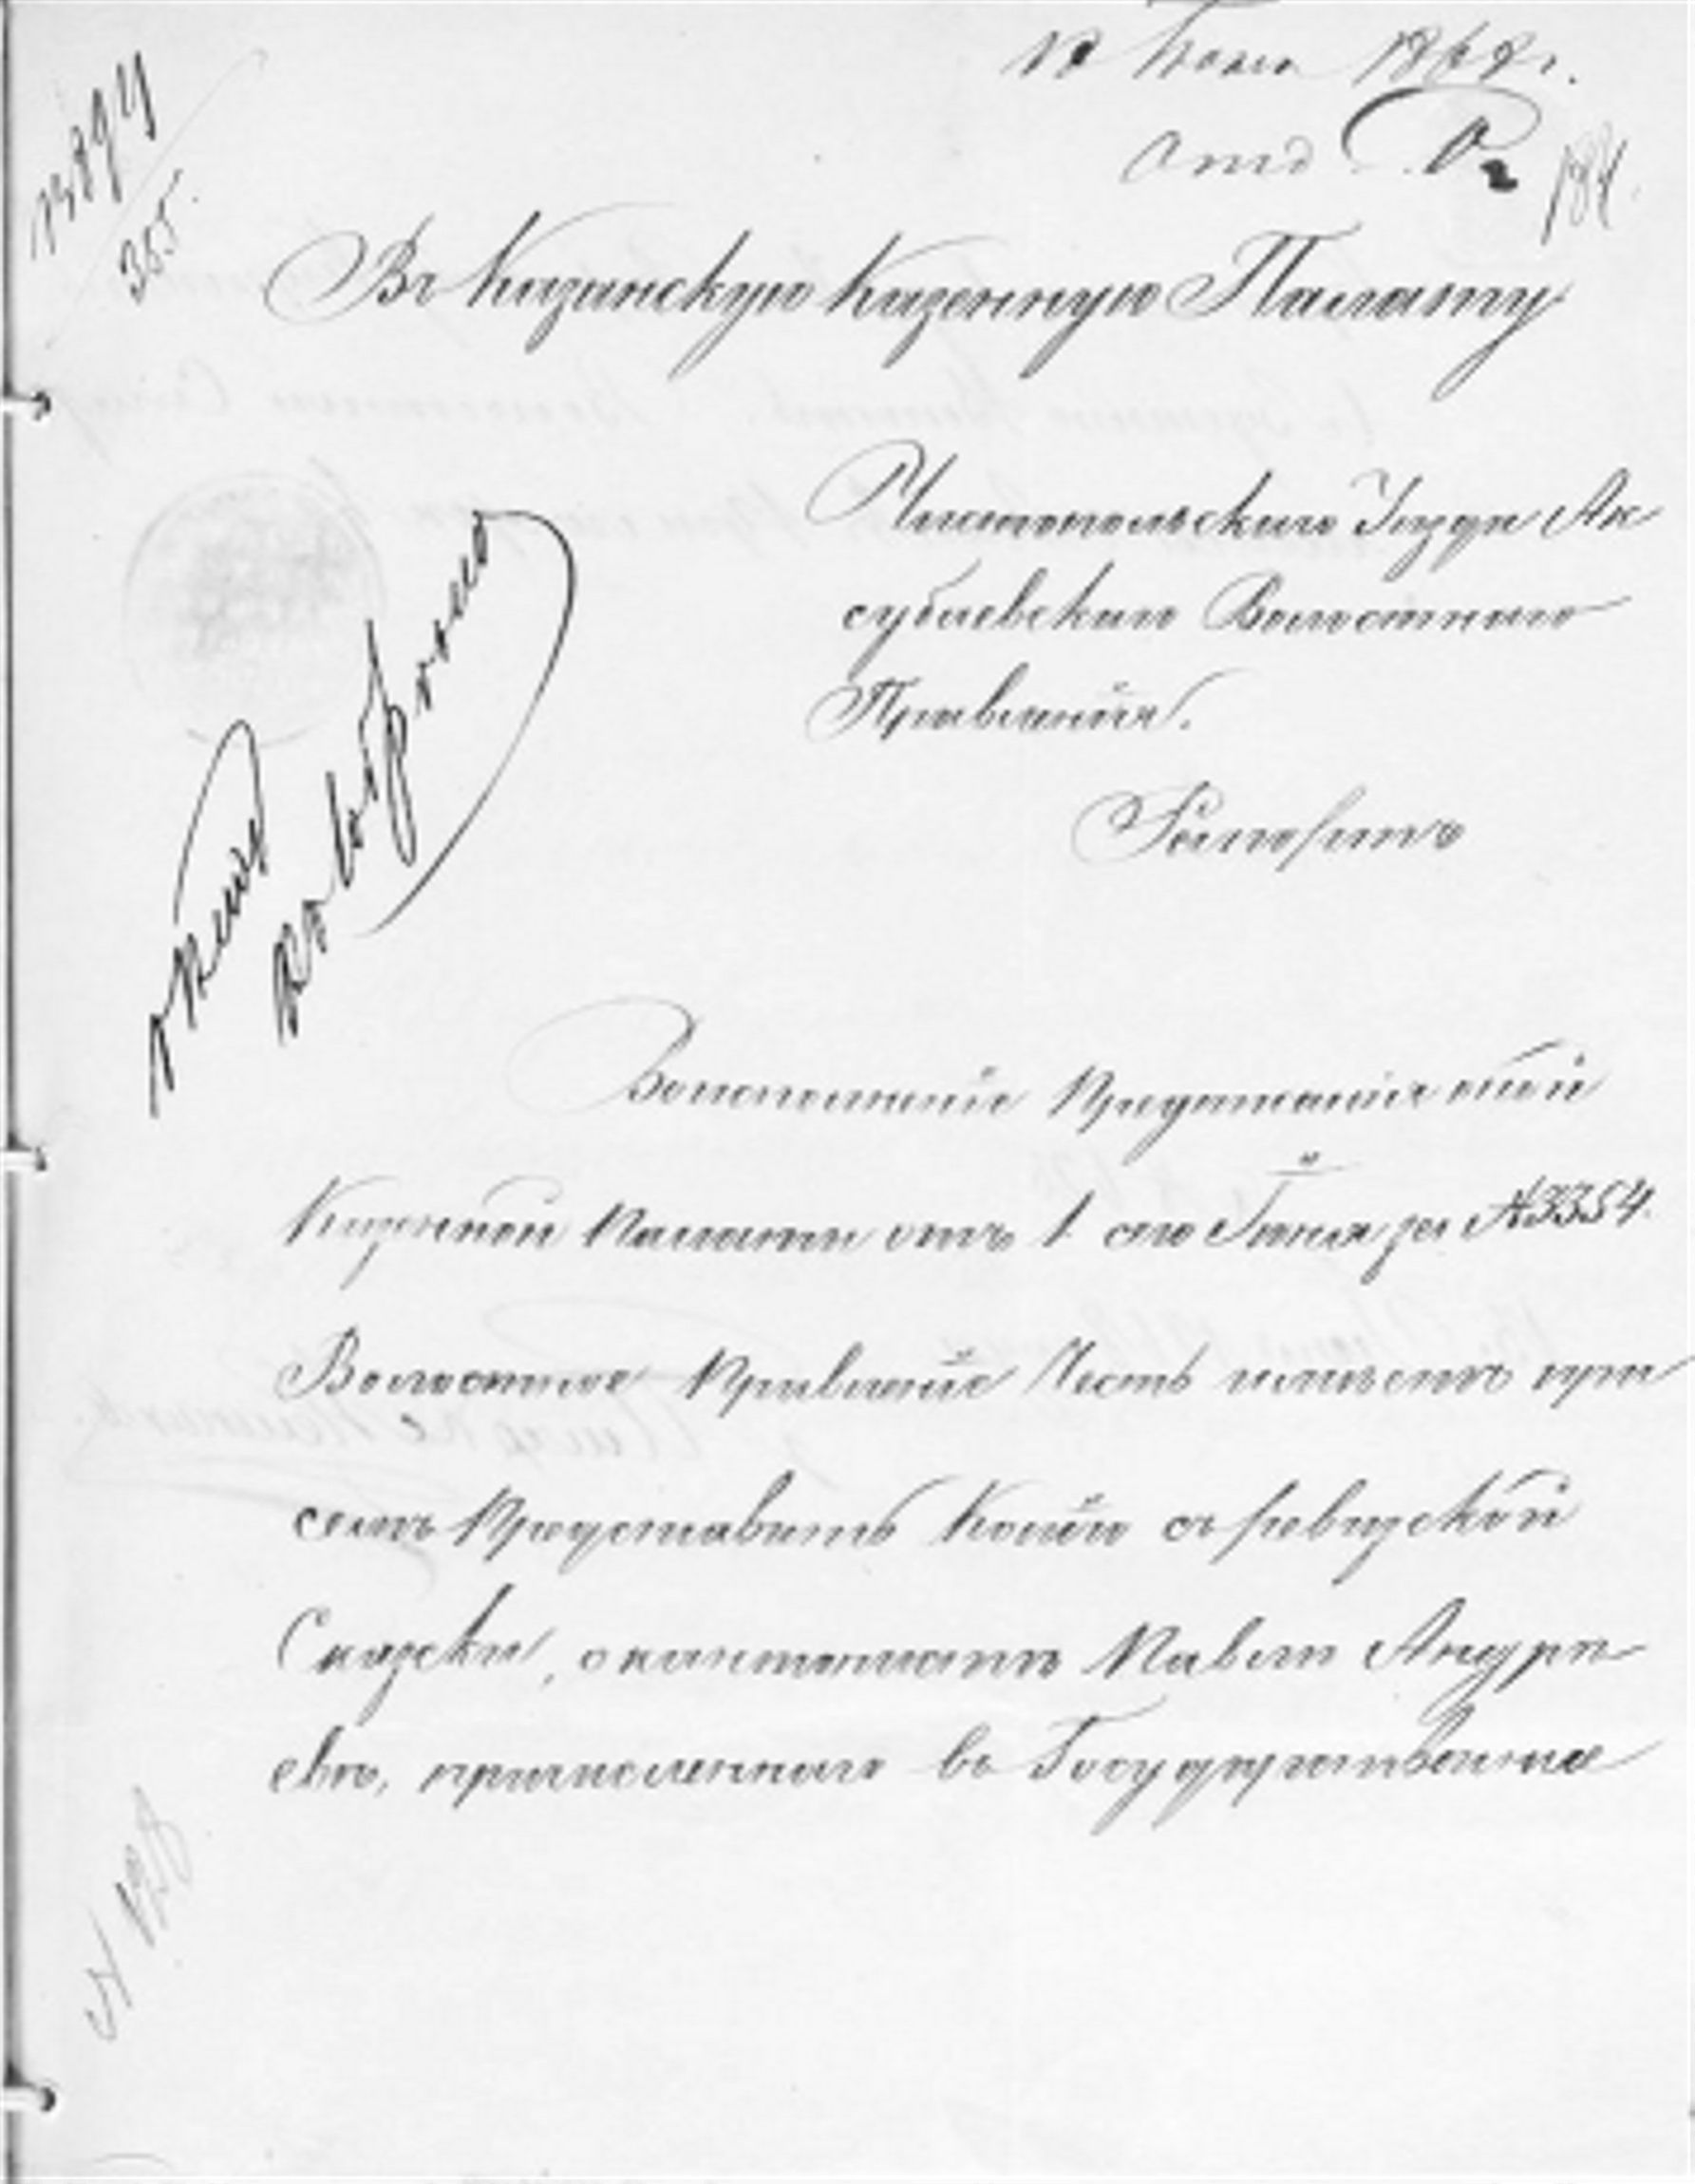 1868 г.
184.
355.
Въ Казанскую Казенную Палату
Чистопольскаго Уѣзда Ак
субаевскаго Волостнаго
Правленія.
Рапортъ
Воисполненіе предписанія оной
Казенной палаты отъ 1 сего Іюня за № 3354.
Волостное правленіе Честь имѣетъ при
семъ представить Копію съ ревизской
Сказки, о кантонистѣ Павлѣ Андрѣ
евѣ, причисленнаго въ Государственные